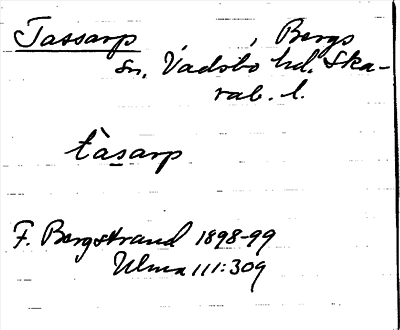 Tassarp , Bergs
sn. Vadsbo hd. Ska-
rab. l.
tàsarp
F. Bergstrand 1898-99
Ulma 111:309